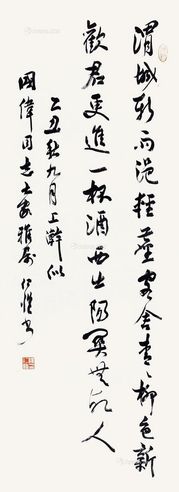 渭城朝雨浥轻尘客舍青々柳色新
劝君更进一杯酒西出阳关无故人
乙丑秋九月上澣似
国伟同志大家雅属